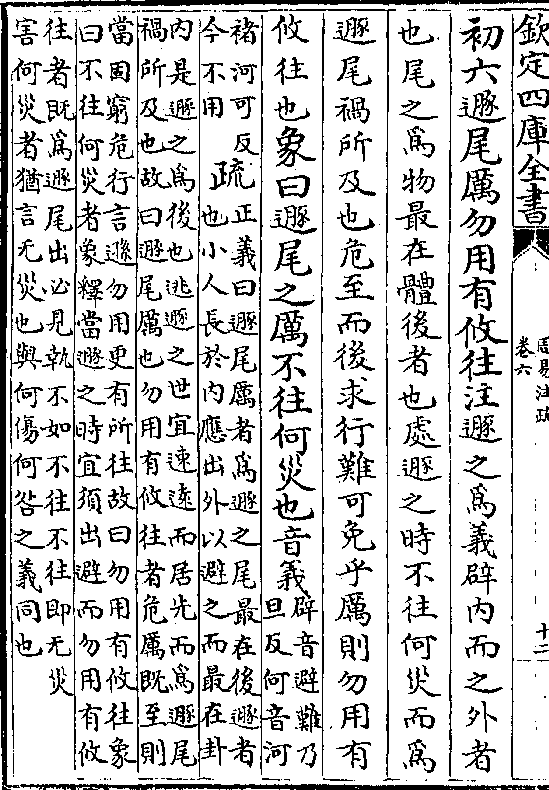 欽定四庫全書
周易注疏
卷六
十二
初六遯尾厲勿用有攸往注遯之爲義辟內而之外者
也尾之爲物最在體後者也處遯之時不往何災而爲
遯尾禍所及也危至而後求行難可免乎厲則勿用有
攸往也象曰遯尾之厲不往何災也音義辟音避難乃
旦反何音河
褚河可反
今不用疏正義曰遯尾厲者爲遯之尾最在後遯者
也小人長於內應出外以避之而最在卦
內是遯之爲後也逃遯之世宜速遠而居先而爲遯尾
禍所及也故曰遯尾厲也勿用有攸往者危厲既至則
當固窮危行言遜勿用更有所往故曰勿用有攸往象
曰不往何災者象釋當遯之時宜須出避而勿用有攸
往者既爲遯尾出必見執不如不往不往即无災
害何災者猶言无災也與何傷何咎之義同也